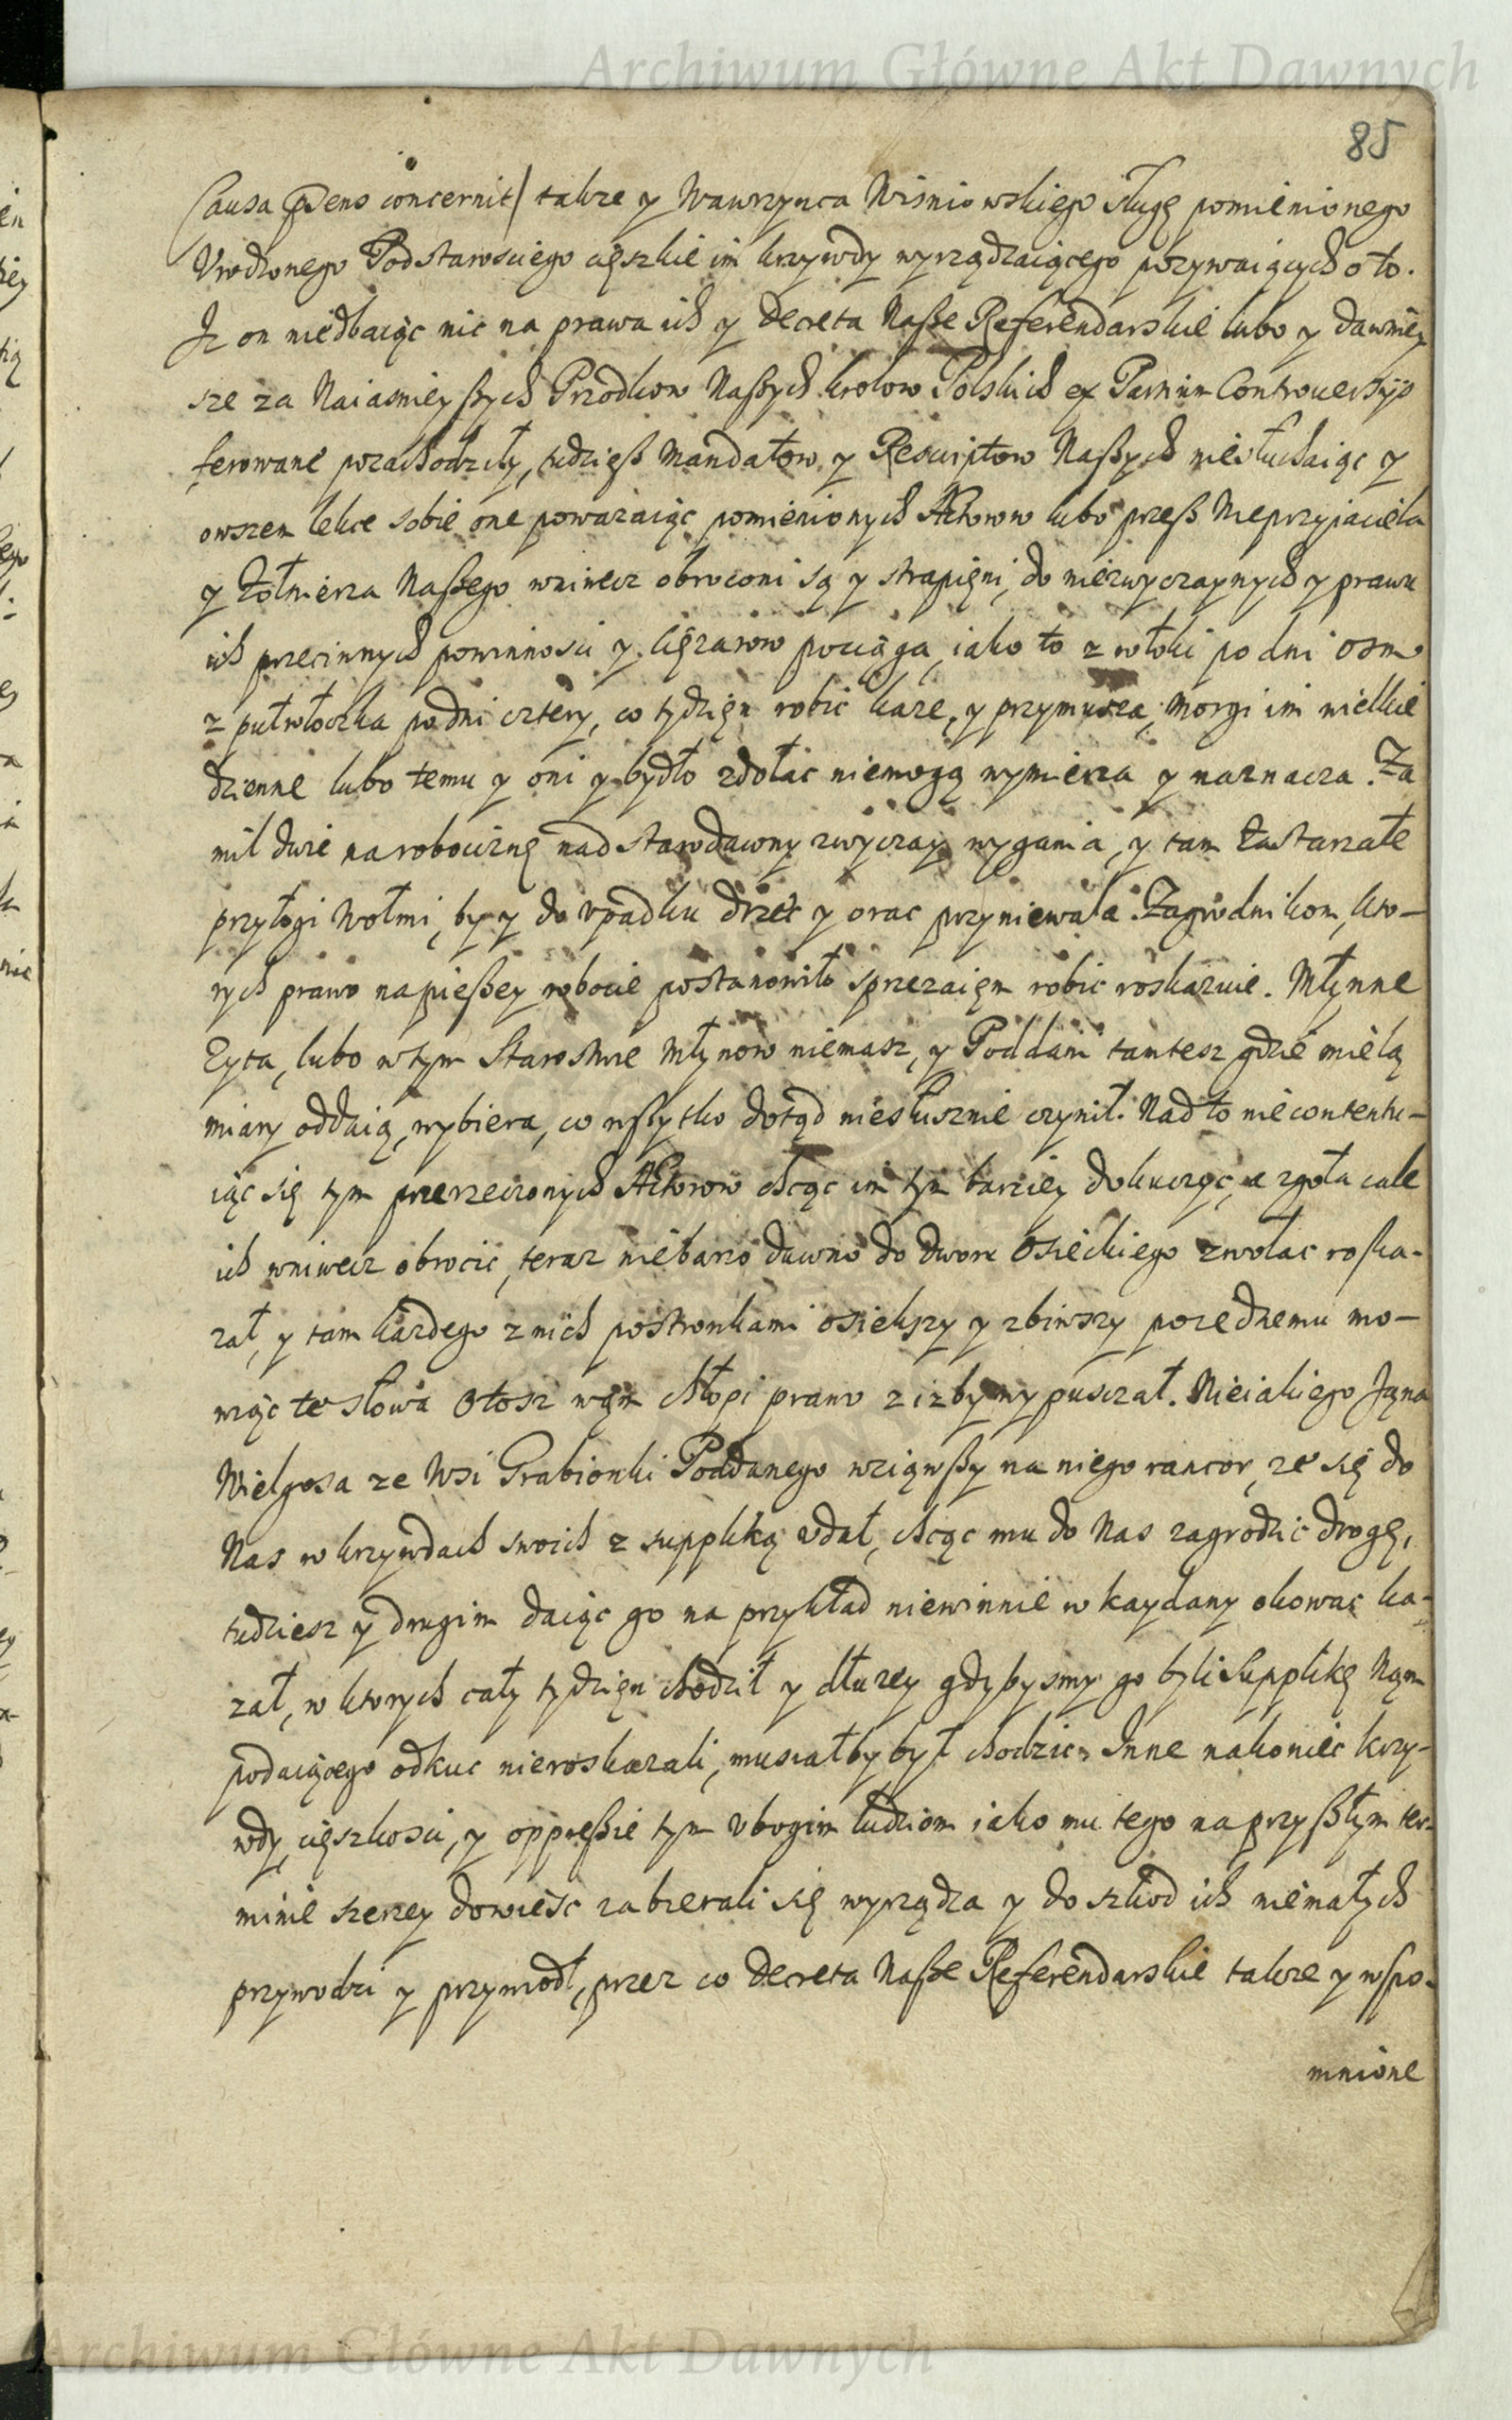 Archiwum Główne Akt Dawnych
85
Causa præns concernit/ takze y Wawrzynca Wisniowskiego sługę pomienionego
Vrodzonego Podstarosciego cięszkie im krzywdy wyrządzaiącego pozywaiących o to.
Iz on niedbaiąc nic na prawa ich y Decreta Naße Referendarskie lubo y dawniey
sze za Naiasniey ßych Przodkow Naßych krolow Polskich ex Partium Controuersijs
ferowane pozachodziły, tudzięß Mandatow y Rescriptow Naßych niesłuchaiąc y
owszem lekce sobie one powazaiąc pomienionych Aktorow lubo przeß Nieprzyiaciela
y Zołnierza Naßego wniwecz obroconi są y strapięni, do niezwyczaynych y prawu
ich przecinnych powinnosci y cięzarow pociąga, iako to z włoki po dni osm
z pułwłoczka po dni cztery, co tydzięn robic kaze, y przymusza, Morgi im wielkie
dzienne lubo temu y oni y bydło zdołac niemogą wymierza y naznacza. Za
mil dwie na robociznę nad starodawny zwyczay wygania, y tam Zastarzałe
przyłogi Wołmi, by y do vpadku drzec y orac przyniewala. Zagrodnikom, kto-
rych prawo na pießey robocie postanowiło sprzezaięm robic roskazuie. Młynne
Zyta, lubo w tym Starostwie Młynow niemasz, y Poddani tamtesz gdzie mielą
miary oddaią, wybiera, co wßytko dotąd niesłusznie czynił. Nad to niecontentu-
iąc się tym przerzeczonych Aktorow chcąc im tym barziey dokuczyc, a zgoła cale
ich wniwecz obrocic, teraz niebarzo dawno do dworu Osieckiego zwołac roska-
zał, y tam kazdego z nich postronkami osiekszy y zbiwszy poiednemu mo-
wiąc te słowa Otosz wąm chłopi prawo z izby wypusczał. Nieiakiego Jąna
Wielgosa ze Wsi Grabionki Poddanego wziąwßy na niego rancor, ze się do
Nas w krzywdach swoich z suppliką vdał, chcąc mu do Nas zagrodzic drogę,
tudziesz y drugim daiąc go na przykład niewinnie w kaydany okowac ka-
zał, w ktorych cały tydzięn chodził y dłuzey gdybysmy go byli Supplikę Nąm
podaiącego odkuc nieroskazali, musiałby był chodzic. Inne nakoniec krzy-
wdy, cięszkosci, y oppreßie tym vbogim ludziom iako mu tego na przyßłym ter-
minie szerzey dowiesc zabierali się wyrządza y do szkod ich niemałych
przywodzi y przywiodł, przez co Decreta Naße Referendarskie takze y wspo-
mnione
Archiwum Główne Akt Dawnych